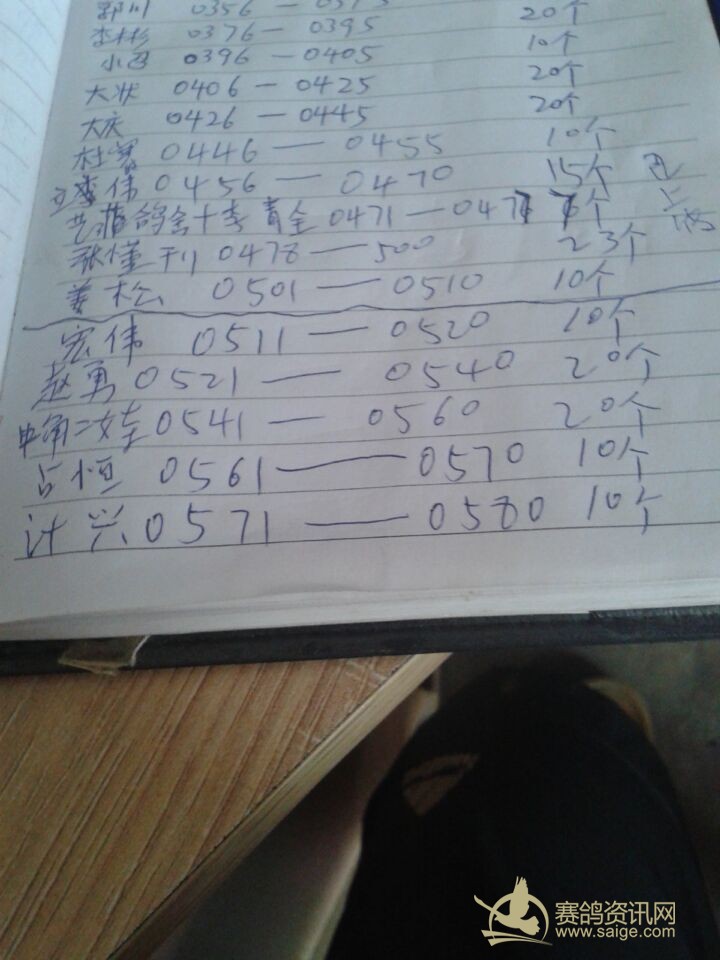 郭川 0356 — 0375 20个
李彬彬 0376 — 0395
小西 0396 — 0405 10个
大状 0406 — 0425 20个
大庆 0426 — 0445 20个
杜 0446 — 0455 10个
李伟 0456 — 0470 15个
鸽舍十李青全 0471 — 0477 7个
张慬刊 0478 — 500 23个
姜松 0501 — 0510 10个
宏伟 0511 — 0520 10个
赵勇 0521 — 0540 20个
0541 — 0560 20个
占恒 0561 — 0570 10个
计兴 0571 — 0580 10个
已上
赛鸽资讯网
www.saige.com